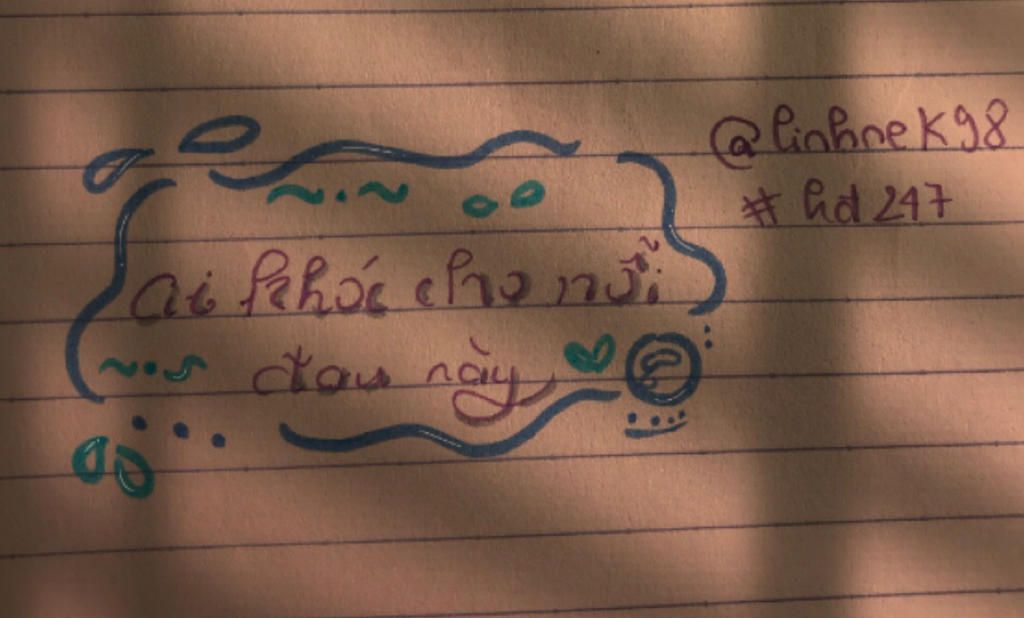 @linhneK98
# hd 247
Ai khóc cho nỗi
đau này